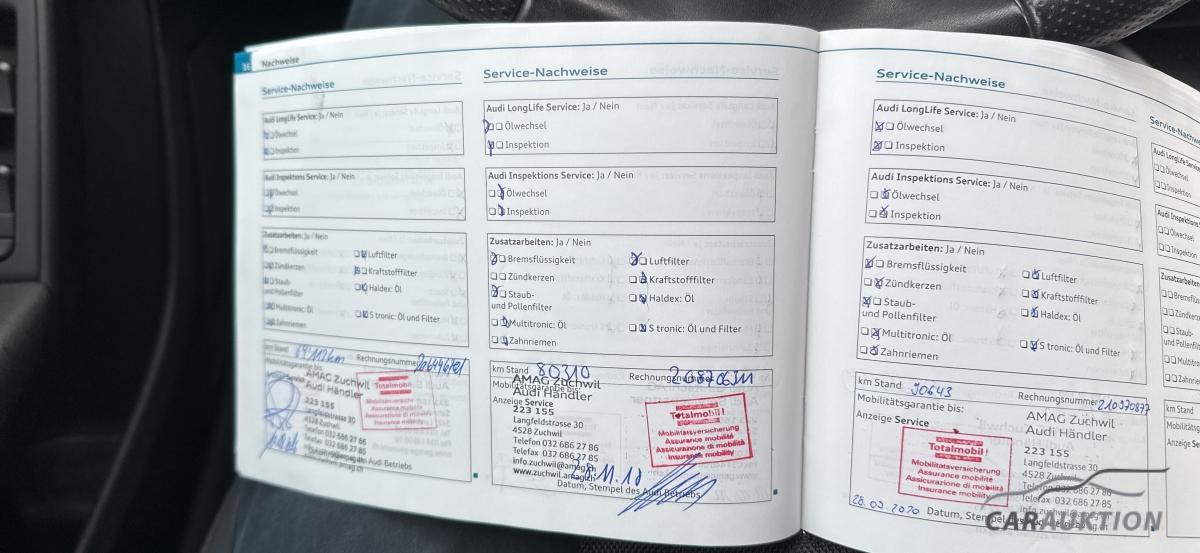 36 Nachweise
Service-Nachweise
Audi LongLife Service: Ja / Nein
Ölwechsel
Inspektion
Audi Inspektions Service: Ja / Nein
Ölwechsel
Inspektion
Zusatzarbeiten: Ja / Nein
Bremsflüssigkeit
Luftfilter
Zündkerzen
Kraftstofffilter
Staub-
und Pollenfilter
Haldex: Öl
Multitronic: Öl
S tronic: Öl und Filter
Zahnriemen
km Stand
Rechnungsnummer
Mobilitätsgarantie bis:
AMAG Zuchwil
Audi Händler
223 155
Langfeldstrasse 30
4528 Zuchwil
Telefon 032 686 27 86
Totalmobil!
Mobilitätsversicherung
Assurance mobilité
Assicurazione di mobilità
Insurance mobility
Service-Nachweise
Audi LongLife Service: Ja / Nein
Ölwechsel
Inspektion
Audi Inspektions Service: Ja / Nein
Ölwechsel
Inspektion
Zusatzarbeiten: Ja / Nein
Bremsflüssigkeit
Luftfilter
Zündkerzen
Kraftstofffilter
Staub-
und Pollenfilter
Haldex: Öl
Multitronic: Öl
S tronic: Öl und Filter
Zahnriemen
km Stand 80310
Rechnungsnummer
Mobilitätsgarantie bis:
AMAG Zuchwil
Audi Händler
Anzeige Service
223 155
Langfeldstrasse 30
4528 Zuchwil
Telefon 032 686 27 86
Telefax 032 686 27 85
info.zuchwil@amag.ch
www.zuchwil.amag.ch
Totalmobil!
Mobilitätsversicherung
Assurance mobilité
Assicurazione di mobilità
Insurance mobility
Datum, Stempel des Audi Betriebs
Service-Nachweise
Audi LongLife Service: Ja / Nein
Ölwechsel
Inspektion
Audi Inspektions Service: Ja / Nein
Ölwechsel
Inspektion
Zusatzarbeiten: Ja / Nein
Bremsflüssigkeit
Luftfilter
Zündkerzen
Kraftstofffilter
Staub-
und Pollenfilter
Haldex: Öl
Multitronic: Öl
S tronic: Öl und Filter
Zahnriemen
km Stand 90643
Rechnungsnummer 210370877
Mobilitätsgarantie bis:
Anzeige Service
AMAG Zuchwil
Audi Händler
223 155
Langfeldstrasse 30
4528 Zuchwil
Telefon 032 686 27 86
Telefax 032 686 27 85
Totalmobil!
Mobilitätsversicherung
Assurance mobilité
Assicurazione di mobilità
Insurance mobility
28.09.2020 Datum, Stempel des
CARAUKTION